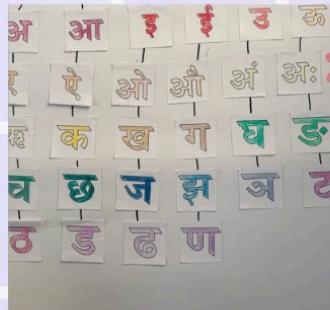 अ आ इ ई उ ऊ
ए ऐ ओ औ अं अः
ऋ क ख ग घ ङ
च छ ज झ ञ ट
ठ ड ढ ण